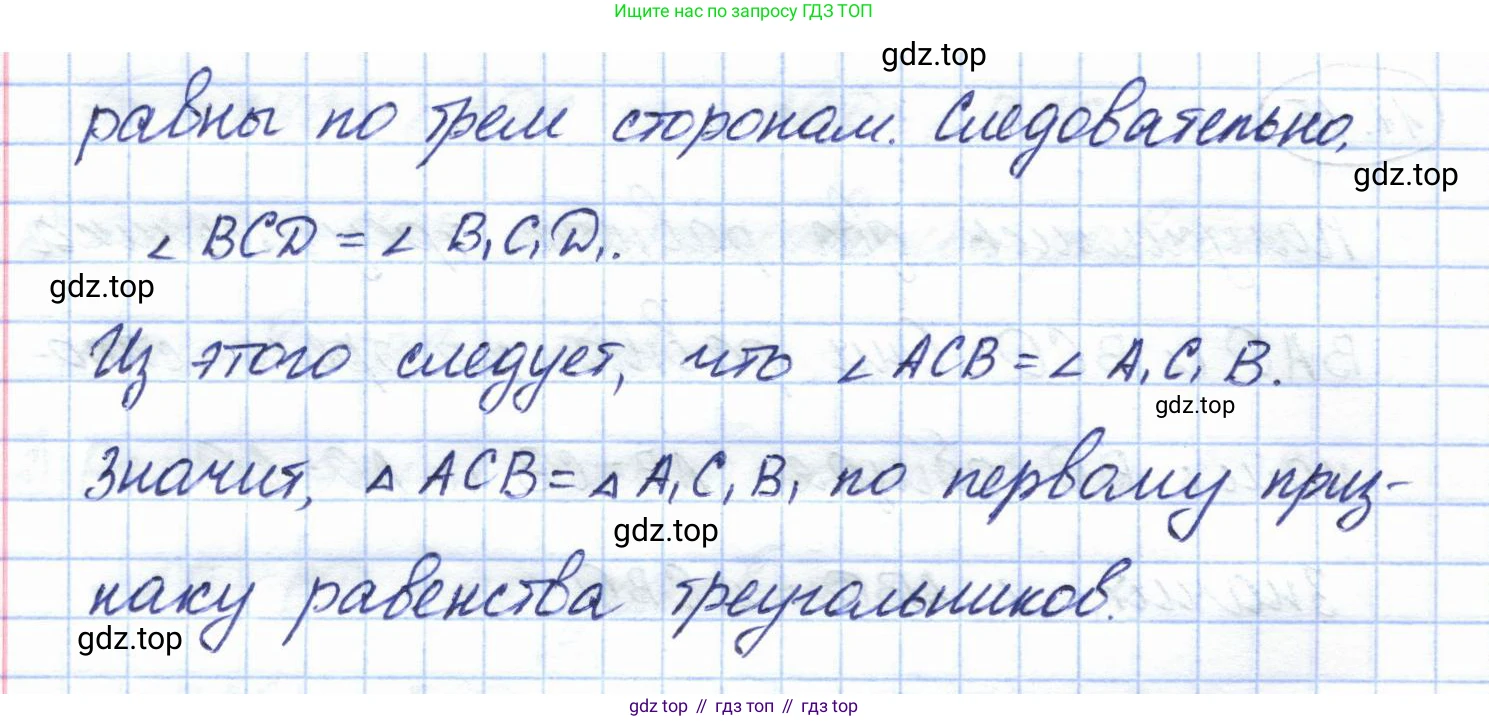 Ищите нас по запросу ГДЗ ТОП
gdz.top
равны по трем сторонам. Следовательно,
gdz.top
∠ BCD = ∠ B₁C₁D₁.
gdz.top
Из этого следует, что ∠ ACB = ∠ A₁C₁B.
gdz.top
Значит, △ ACB = △ A₁C₁B₁ по первому приз-
gdz.top
наку равенства треугольников.
gdz.top
gdz top // гдз топ // gdz top